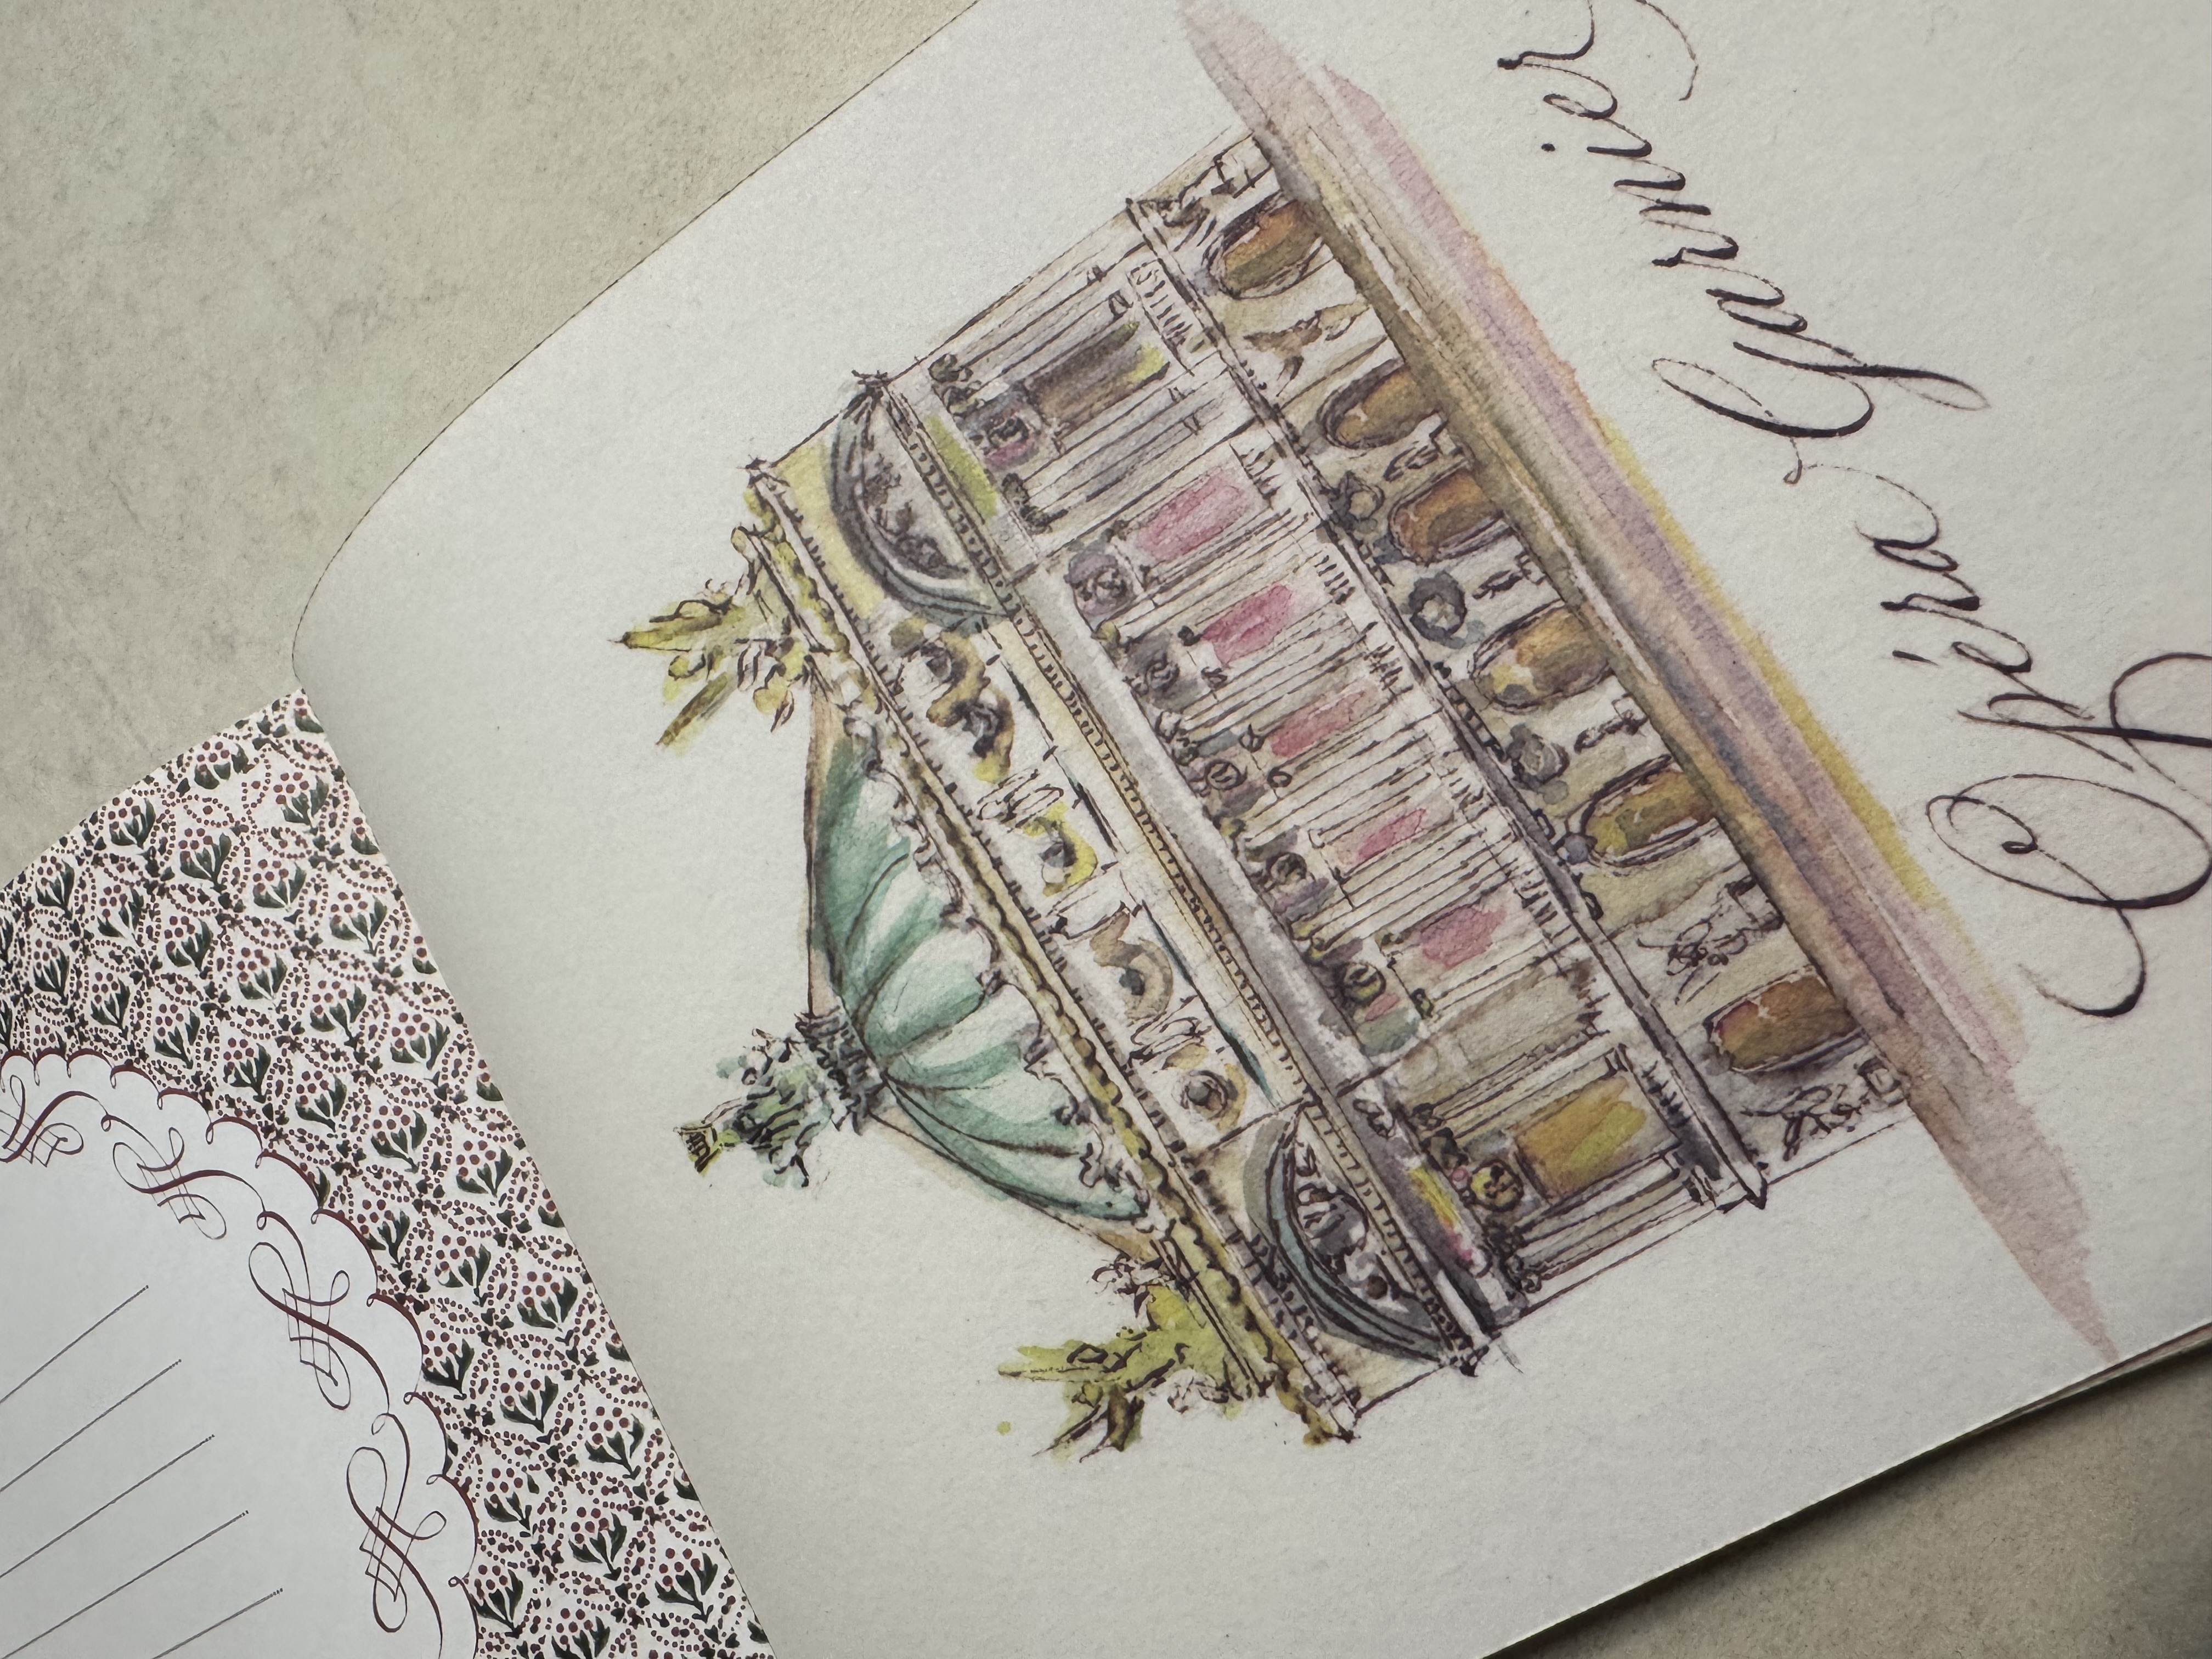 Opéra Garnier